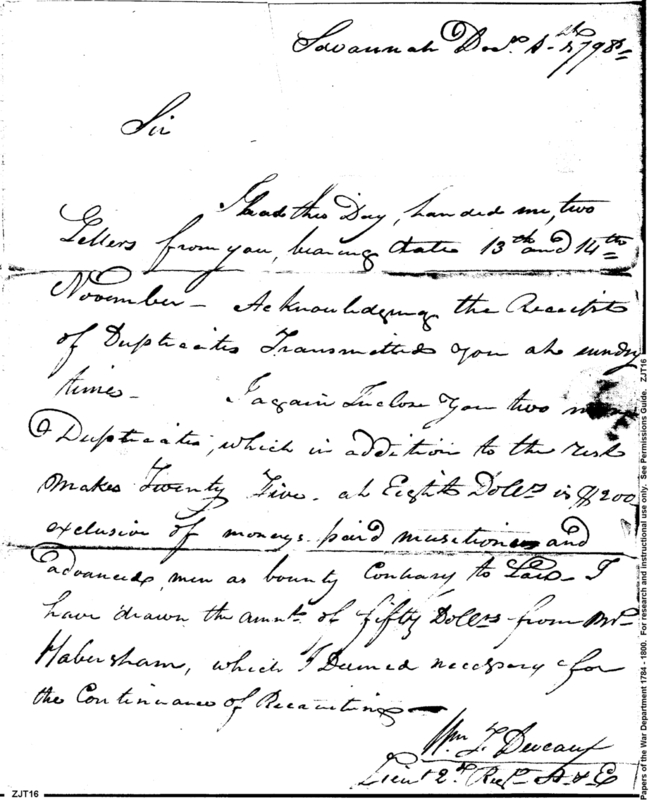 Savannah Decr. 1798
Sir
I had this Day, handed me, two
Letters from you, bearing date 13th and 14th
November - Acknowledging the Receipt
of Duplicates Transmitted you at sundry
times - I again Inclose you two more
Duplicates, which in addition to the rest
makes Twenty Five - at Eight Dollrs is $200
exclusive of moneys paid musitions and
advanced men as bounty Contrary to Law - I
have drawn the amnt. of fifty Dollrs from Mr
Habersham, which I Deemed necessary for
the Continuance of Recruiting -
Wm. Deveaux
Lieut 2d. Regt. A & E
ZJT16
Papers of the War Department 1784 - 1800. For research and instructional use only. See Permissions Guide. ZJT16